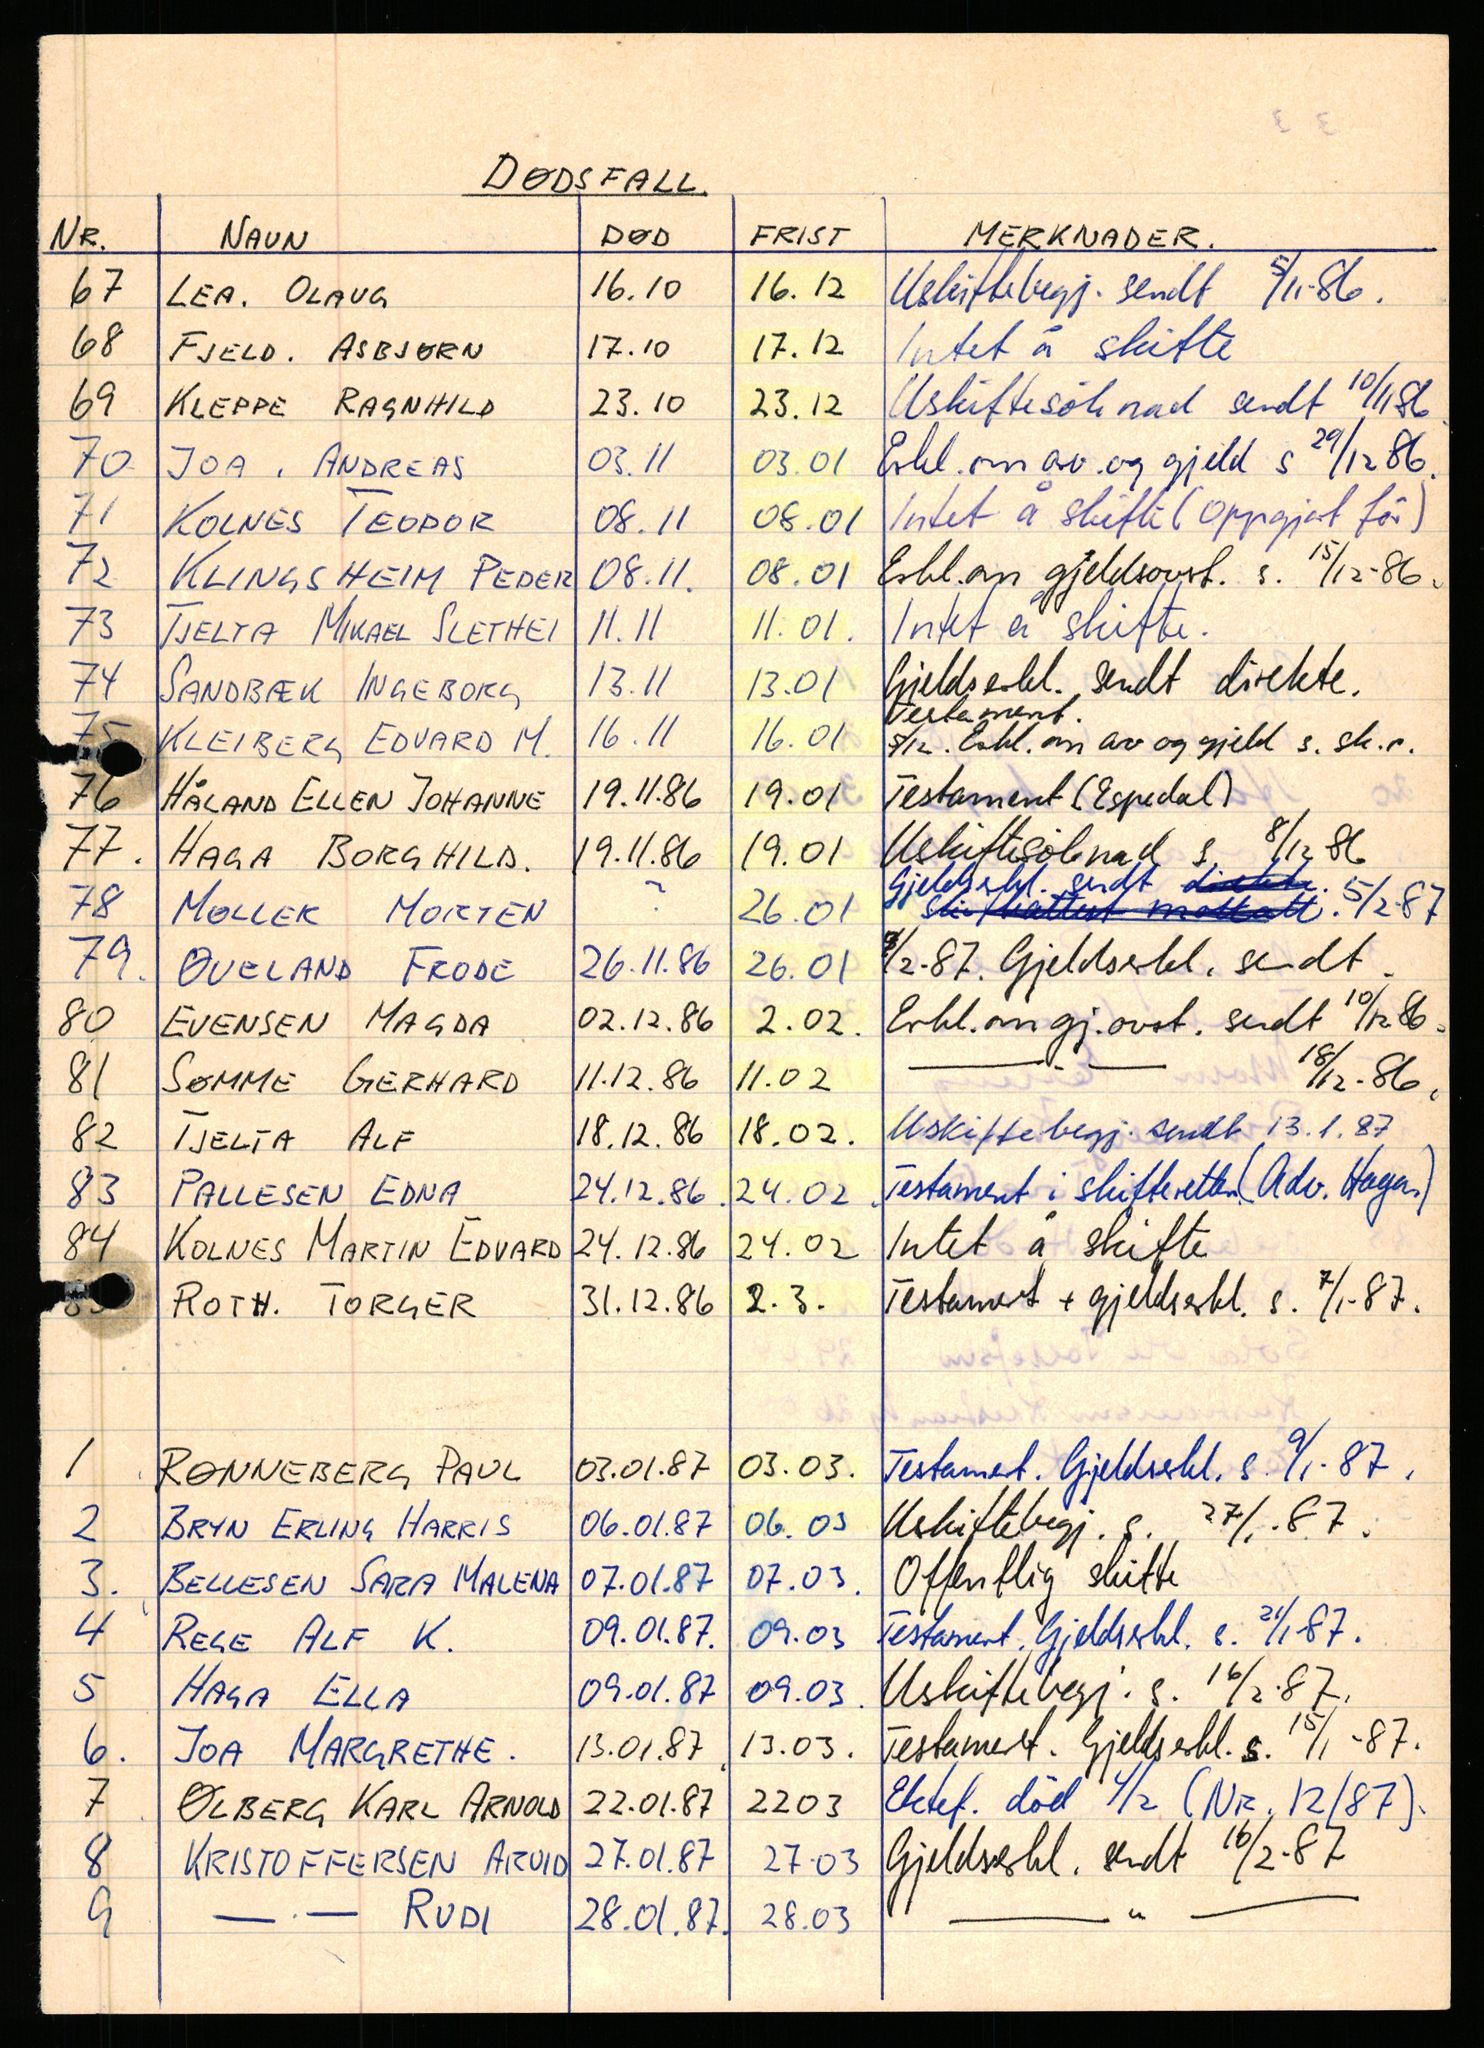 DØDSFALL.
NR. NAVN DØD FRIST MERKNADER.
67 LEA. OLAUG 16.10 16.12 Uskiftebegj. sendt 5/11-86.
68 FJELD. ASBJØRN 17.10 17.12 Intet å skifte
69 KLEPPE RAGNHILD 23.10 23.12 Uskiftesöknad sendt 10/11 86
70 JOA. ANDREAS 03.11 03.01 Erkl. om av. og gjeld s 29/12 86.
71 KOLNES TEODOR 08.11 08.01 Intet å skifte (oppgjort för)
72 KLINGSHEIM PEDER 08.11. 08.01 Erkl. om gjeldsovst. s. 15/12-86.
73 TJELTA MIKAEL SLETHEI 11.11 11.01. Intet å skifte.
74 SANDBÆK INGEBORG 13.11 13.01 Gjeldserkl. sendt direkte.
Testament.
75 KLEIBERG EDVARD M. 16.11 16.01 5/12. Erkl. om av og gjeld s. sk.r.
76 HÅLAND ELLEN JOHANNE 19.11.86 19.01 Testament (Espedal)
77. HAGA BORGHILD. 19.11.86 19.01 Uskiftesöknad s. 8/12 86
Gjeldserkl. sendt direkte.
78 MØLLER MORTEN ? 26.01 mottatt. 5/2-87
79. ØVELAND FRODE 26.11.86 26.01 /2-87. Gjeldserkl. sendt.
80 EVENSEN MAGDA 02.12.86 2.02. Erkl. om gj. ovst. sendt 10/12 86.
81 SØMME GERHARD 11.12.86 11.02 —"— 18/12-86.
82 TJELTA ALF 18.12.86 18.02. Uskiftebegj. sendt 13.1.87
83 PALLESEN EDNA 24.12.86. 24.02. Testament i skifteretten (Adv. Haga)
84 KOLNES MARTIN EDVARD 24.12.86 24.02 Intet å skifte
85 ROTH. TORGER 31.12.86 2.3. Testament + gjeldserkl. s. 7/1-87.
1 RØNNEBERG PAUL 03.01.87 03.03. Testament. Gjeldserkl. s. 9/1-87.
2 BRYN ERLING HARRIS 06.01.87 06.03 Uskiftebegj. s. 27/1-87.
3. BELLESEN SARA MALENA 07.01.87 07.03. Offentlig skifte
4 REGE ALF K. 09.01.87. 09.03 Testament. Gjeldserkl. s. 21/1-87.
5 HAGA ELLA 09.01.87 09.03. Uskiftebegj. s. 16/2-87.
6. JOA MARGRETHE. 13.01.87. 13.03. Testament. Gjeldserkl. s. 15/1-87.
7 ØLBERG KARL ARNOLD 22.01.87 2203 Ektef. död 4/2 (Nr. 12/87).
8 KRISTOFFERSEN ARVID 27.01.87 27.03 Gjeldserkl. sendt 16/2-87
9 —.— RUDI 28.01.87. 28.03 —"—